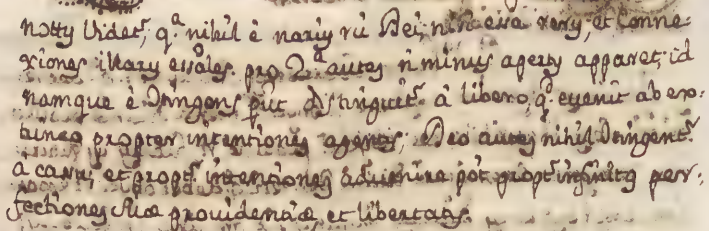 notũ videtʳ, qᵃ nihil è nariũ rũ Dei, nisi essa rerũ, et conne-
xiones illarũ essales. pro 2ᵃ autẽ ñ minus apertẽ apparet; id
namque è Dtingens put distinguitʳ à libero, qᵈ evenit ab ex-
trinseo propter intentionẽ agentis; Deo autẽ nihil Dtingentʳ
à casu, et proptʳ intentionẽ advenire pot proptʳ infinitã per-
fectionẽ suæ providentiæ, et libertatis.